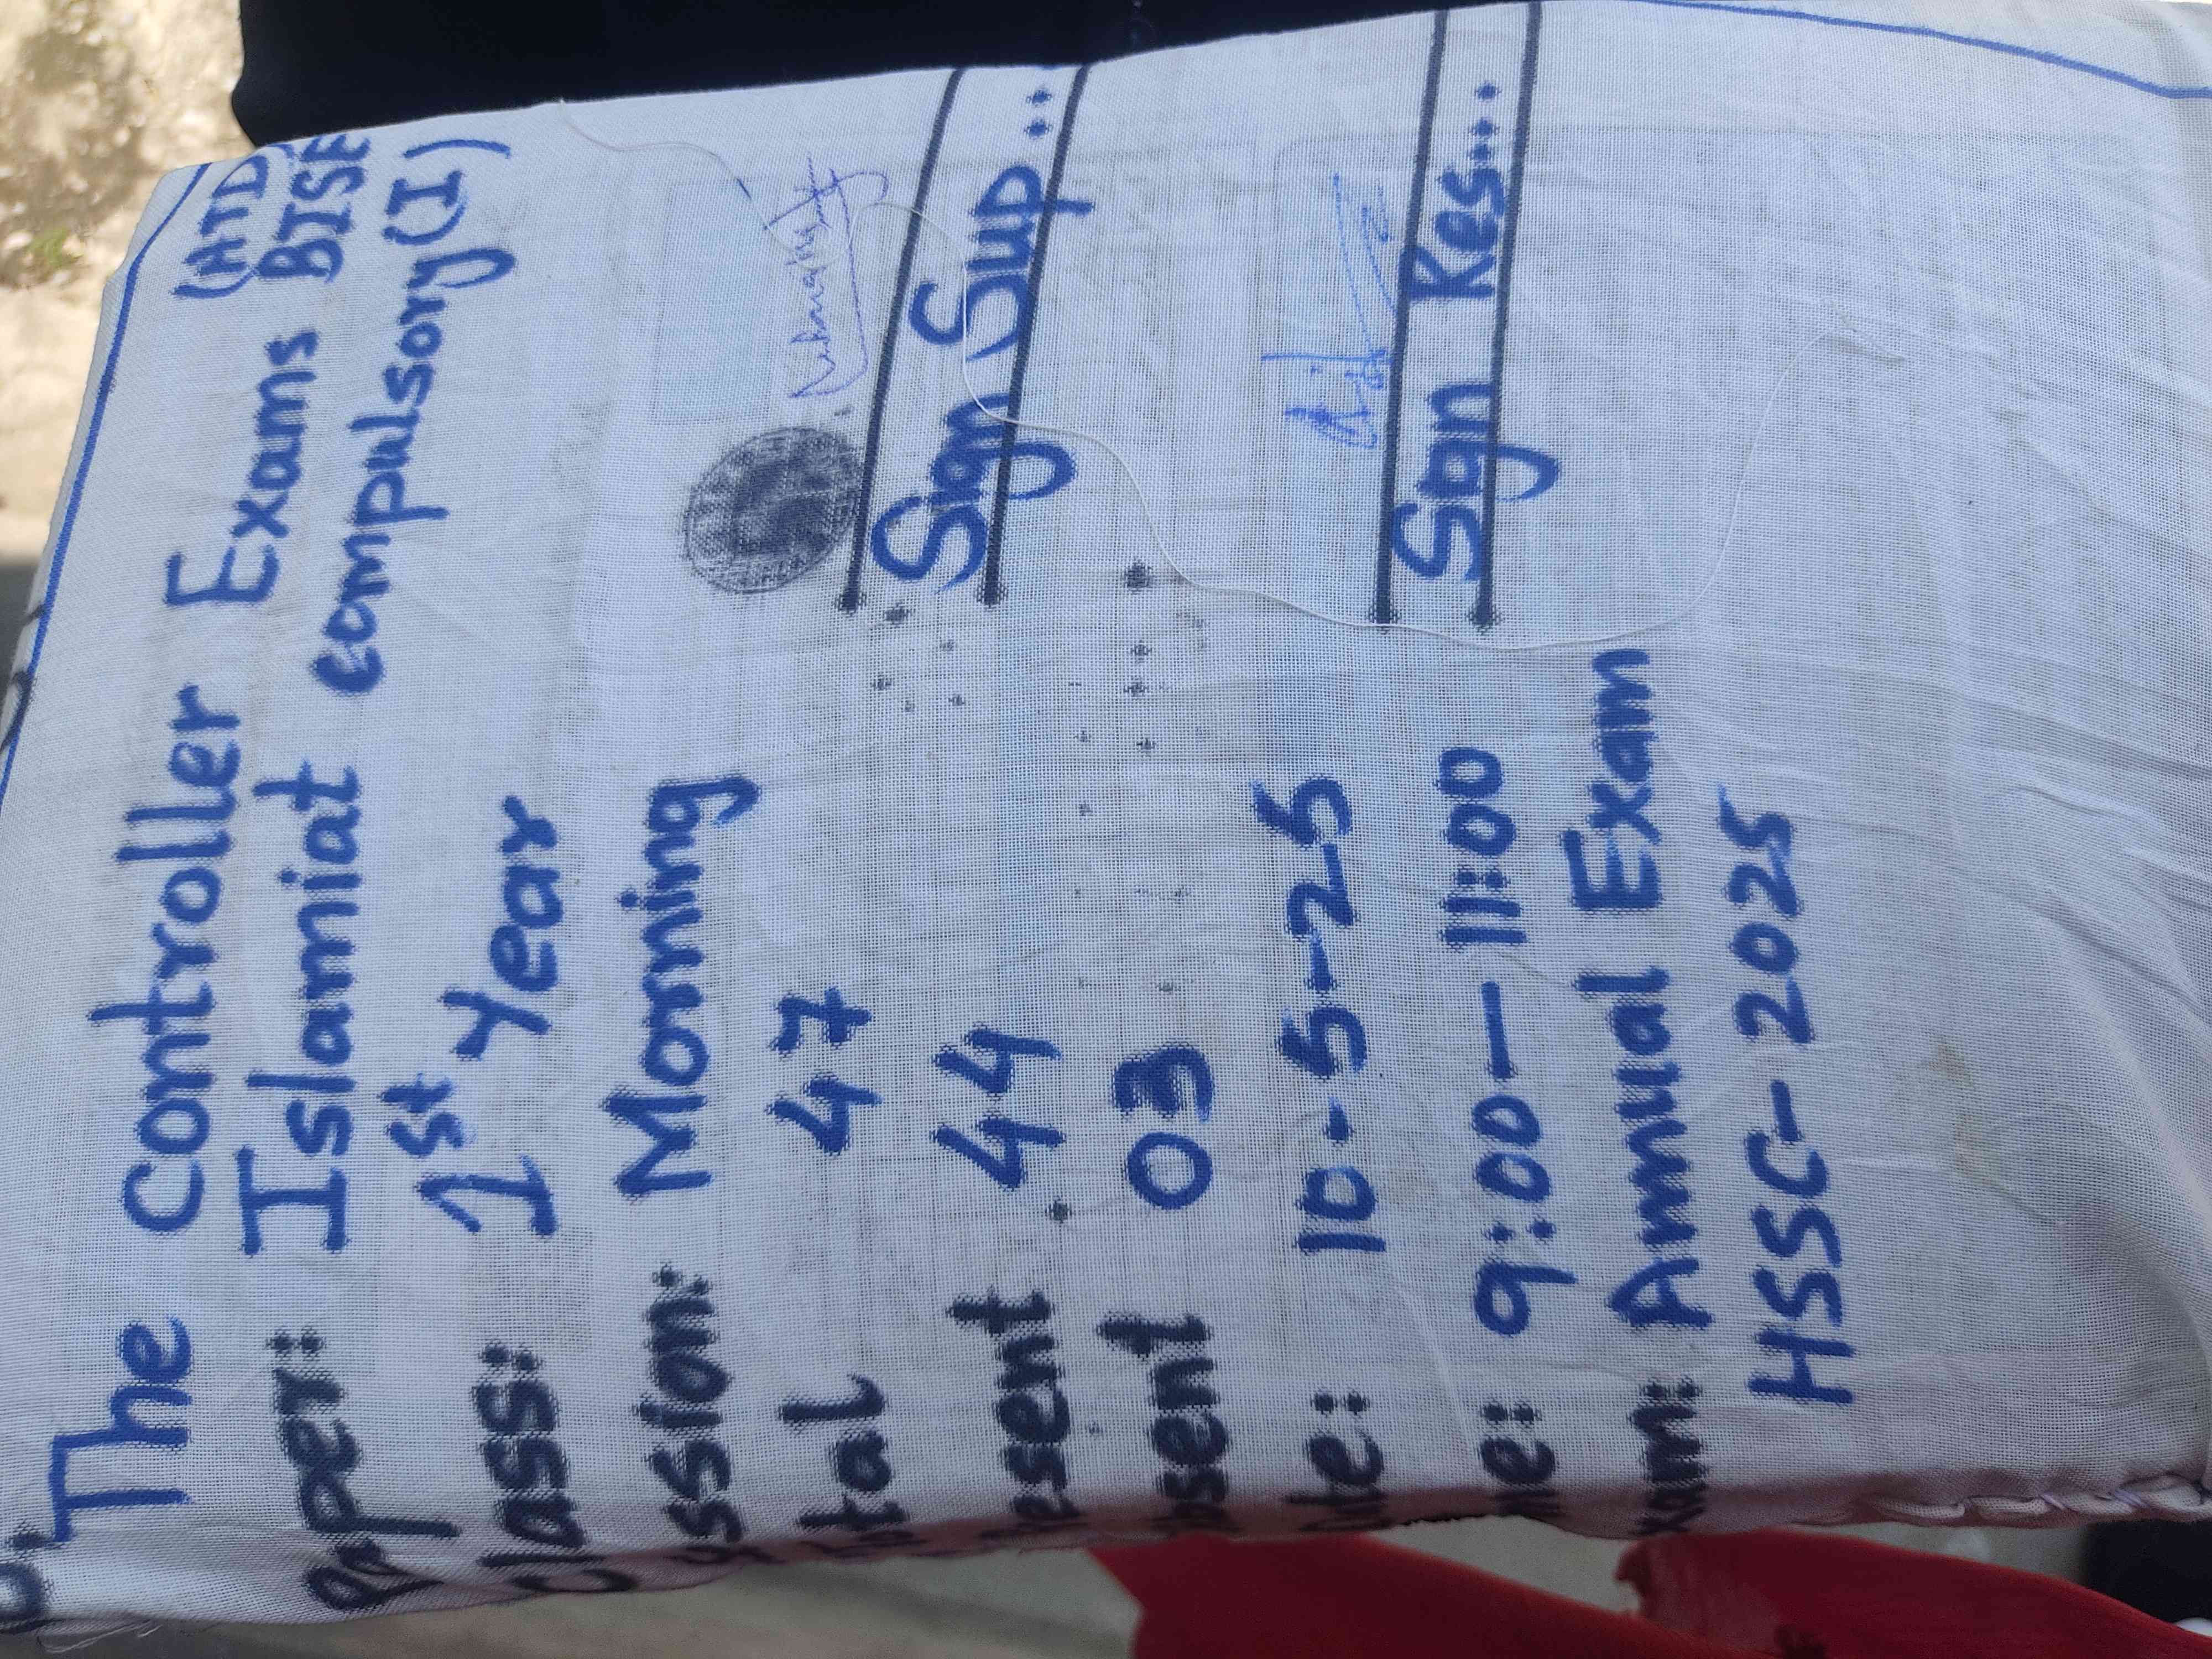 The Controller Exams BISE (ATD)
aper: Islamiat compulsory (I)
lass: 1st Year
ssion: Morning
tal 47
esent 44
sent 03
te: 10-5-25
e: 9:00-11:00
am: Annual Exam
HSSC-2025
Sign Sup...
Sign Res...